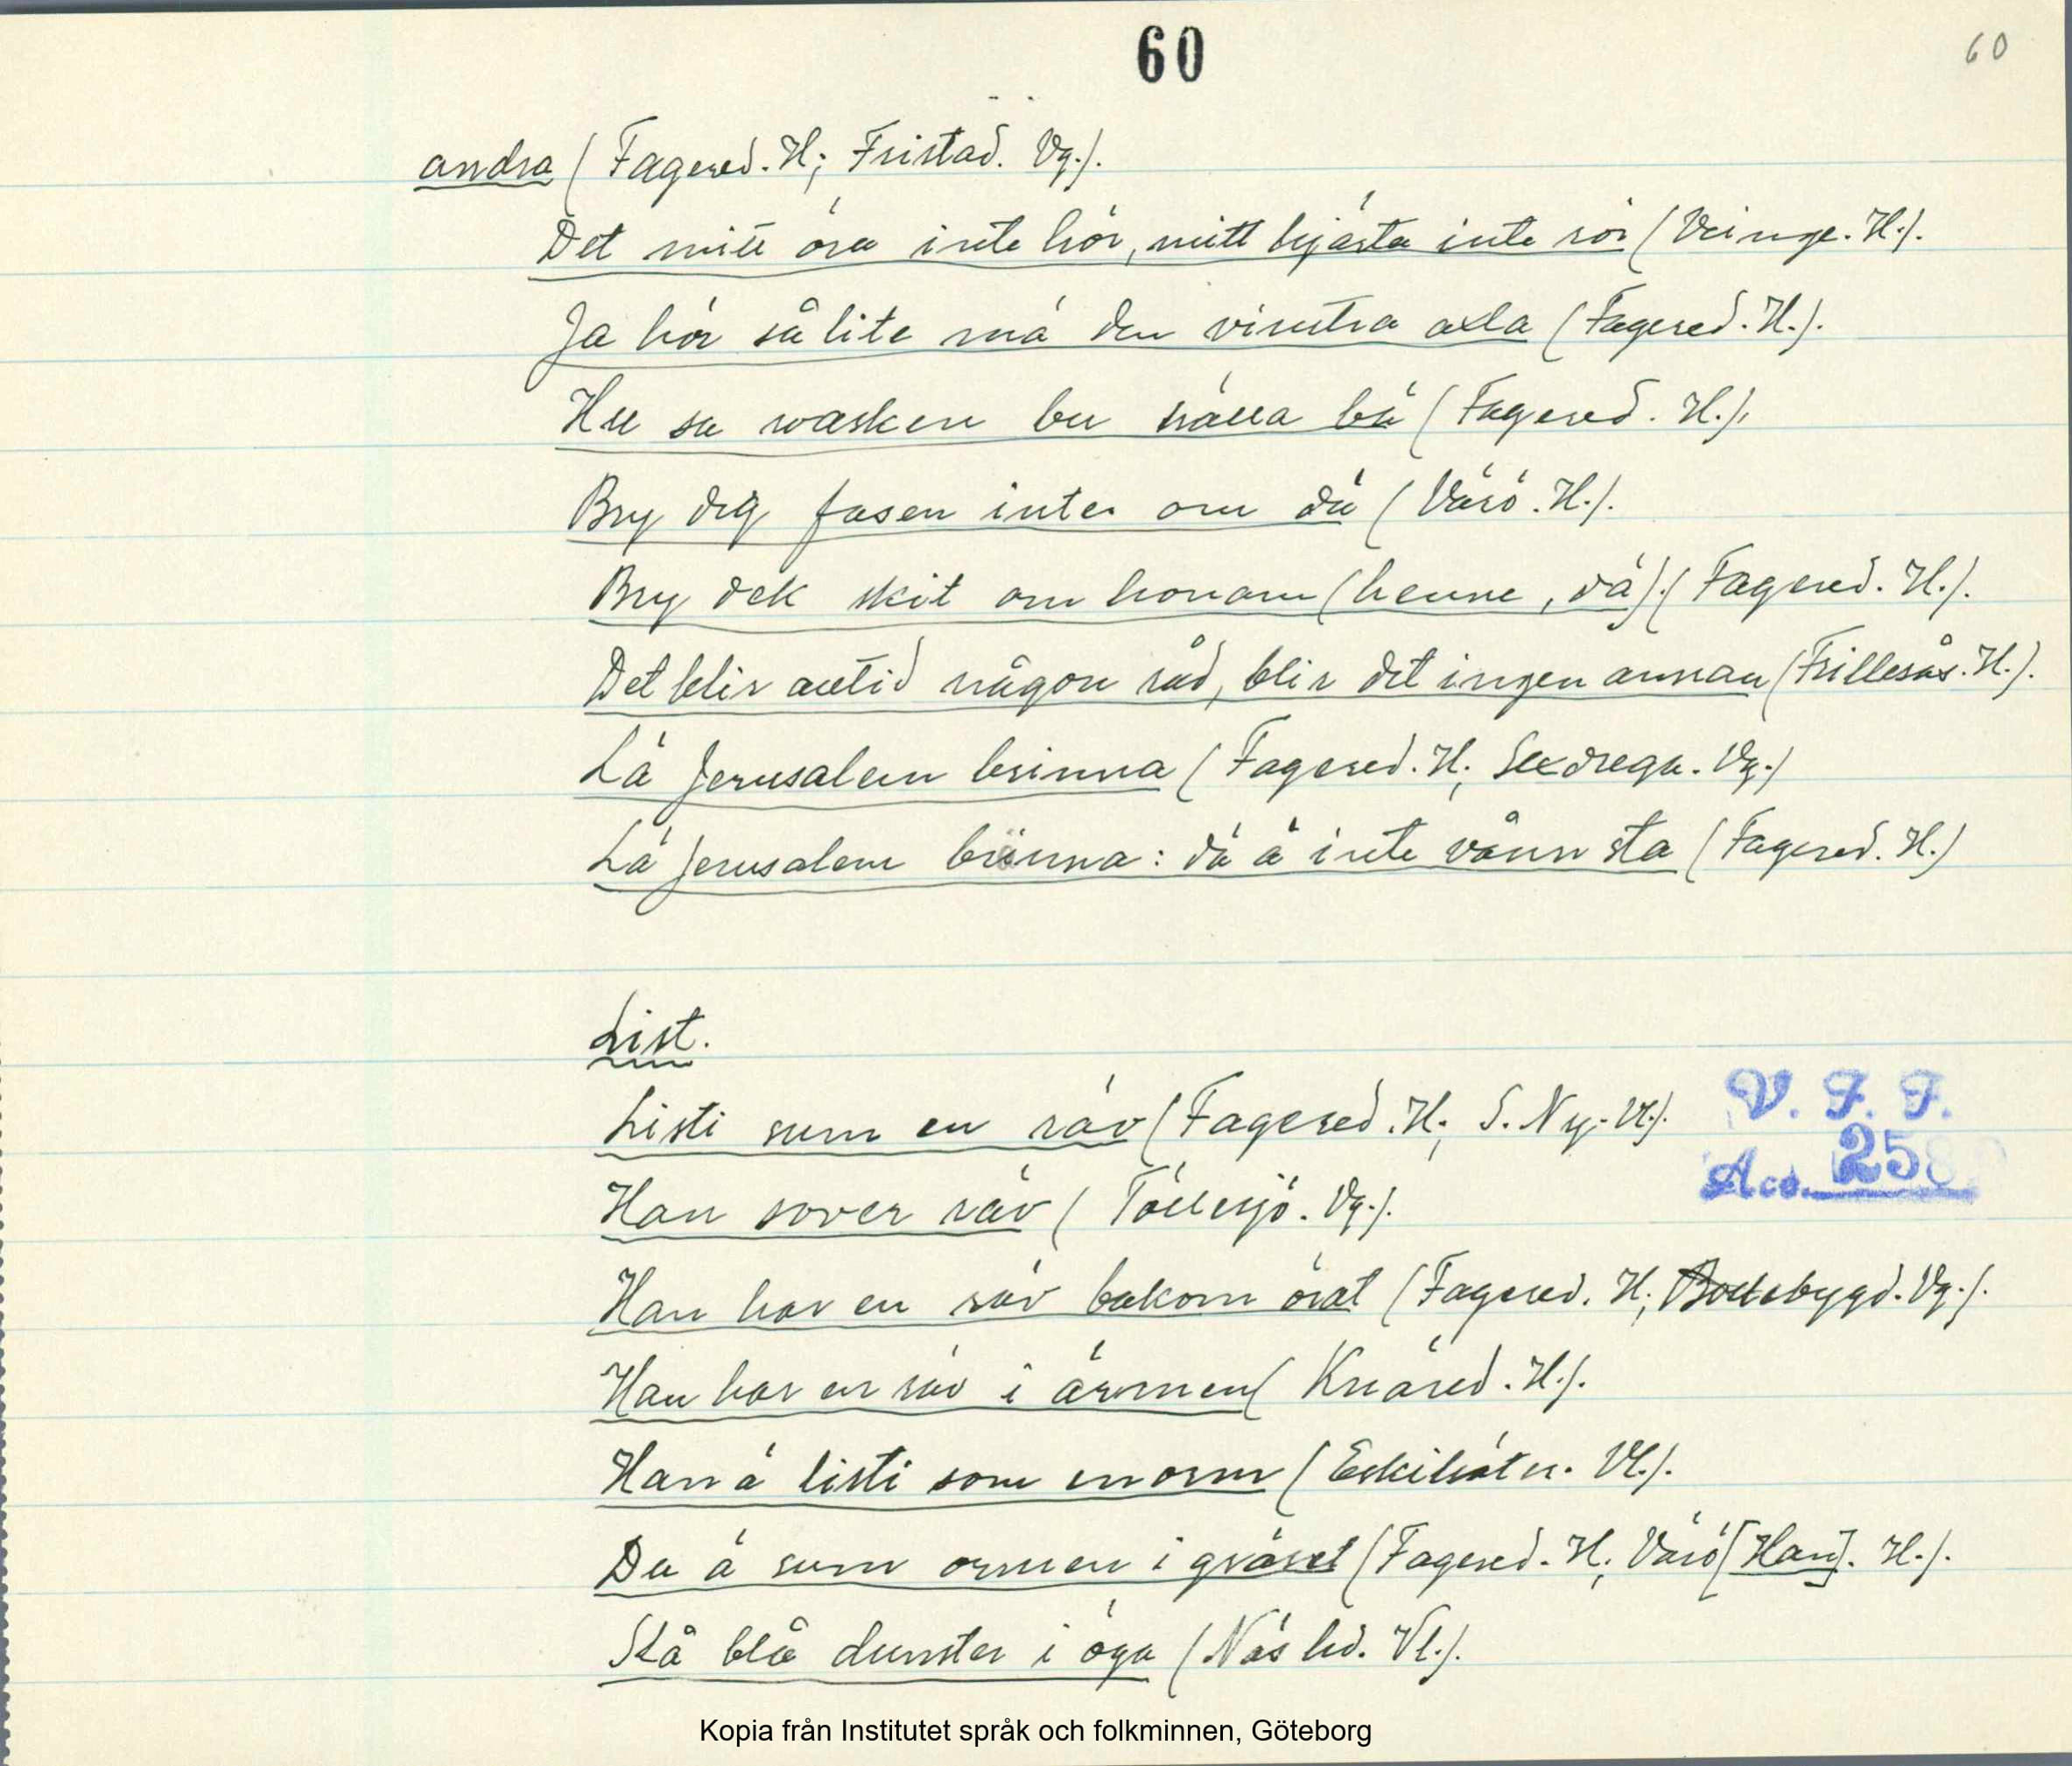 60
60
andra (Fagered. H; Fristad. Vg.).
Det mitt öra inte hör, mitt hjärta inte rör (Veinge. H.).
Ja hör så lite mä den vinstra axla (Fagered. H.).
Hu sa wasken bu (Fagered. H.).
Bry dig fasen inte om dä (Värö. H.).
Bry dek skit om honom (henne, dä). (Fagered. H.).
Det blir alltid någon råd, blir det ingen annan (Frillesås. H.).
Lä Jerusalem brinna (Fagered. H; Sexdrega. Vg.)
Lä Jerusalem brinna: dä ä inte vånn sta (Fagered. H.)
List.
Listi sum en räv (Fagered. H; S. Ny. Vl.).
Han sover räv (Töllesjö. Vg.).
Han har en räv bakom örat (Fagered. H; Bollebygd. Vg.).
Han har en räv i ärmen (Knäred. H.).
Han ä listi som en orm (Eskilsäter. Vl.).
Du ä sum ormen i gräset (Fagered. H; Värö [Han]. H.).
Slå blå dunster i öga (Näs hd. Vl.).
V. F. F.
Acc. 258
Kopia från Institutet språk och folkminnen, Göteborg